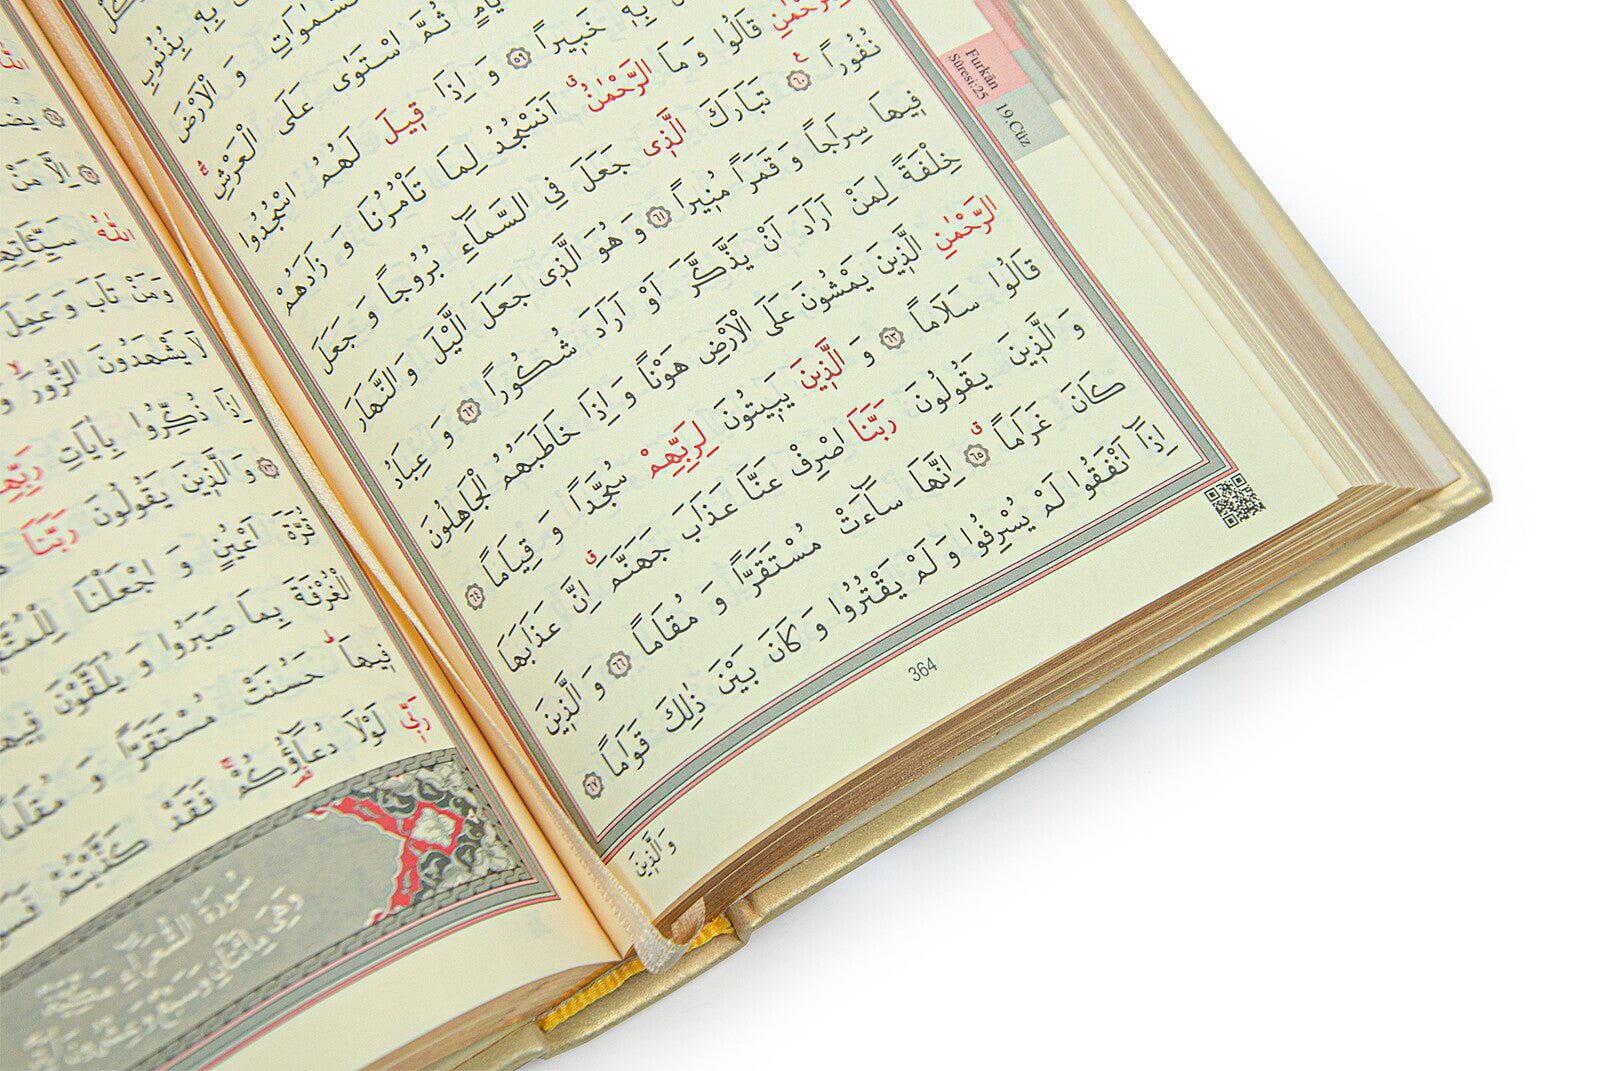 بِهٖ بِذُنُوبِ
السَّمٰوَاتِ وَ الْاَرْضَ
ثُمَّ اسْتَوٰى عَلَى الْعَرْشِ
بِهٖ خَبٖيراً ﴿٥٩﴾ وَ اِذَا قٖيلَ لَهُمُ اسْجُدُوا
لِلرَّحْمٰنِ قَالُوا وَ مَا الرَّحْمٰنُ اَنَسْجُدُ لِمَا تَاْمُرُنَا وَ زَادَهُمْ
نُفُوراً ﴿٦٠﴾ تَبَارَكَ الَّذٖى جَعَلَ فِى السَّمَٓاءِ بُرُوجاً وَ جَعَلَ
فٖيهَا سِرَاجاً وَ قَمَراً مُنٖيراً ﴿٦١﴾ وَ هُوَ الَّذٖى جَعَلَ الَّيْلَ وَ النَّهَارَ
خِلْفَةً لِمَنْ اَرَادَ اَنْ يَذَّكَّرَ اَوْ اَرَادَ شُكُوراً ﴿٦٢﴾ وَ عِبَادُ
الرَّحْمٰنِ الَّذٖينَ يَمْشُونَ عَلَى الْاَرْضِ هَوْناً وَ اِذَا خَاطَبَهُمُ الْجَاهِلُونَ
قَالُوا سَلَاماً ﴿٦٣﴾ وَ الَّذٖينَ يَبٖيتُونَ لِرَبِّهِمْ سُجَّداً وَ قِيَاماً ﴿٦٤﴾
وَ الَّذٖينَ يَقُولُونَ رَبَّنَا اصْرِفْ عَنَّا عَذَابَ جَهَنَّمَ اِنَّ عَذَابَهَا
كَانَ غَرَاماً ﴿٦٥﴾ اِنَّهَا سَٓاءَتْ مُسْتَقَرًّا وَ مُقَاماً ﴿٦٦﴾ وَ الَّذٖينَ
اِذَٓا اَنْفَقُوا لَمْ يُسْرِفُوا وَ لَمْ يَقْتُرُوا وَ كَانَ بَيْنَ ذٰلِكَ قَوَاماً ﴿٦٧﴾
وَ الَّذٖينَ
364
Furkân
Sûresi:25
19.Cüz
اِلَّا مَنْ
اللّٰهُ سَيِّـَٔاتِهِمْ
وَ مَنْ تَابَ وَ عَمِلَ
لَا يَشْهَدُونَ الزُّورَ
اِذَا ذُكِّرُوا بِاٰيَاتِ رَبِّهِمْ
وَ الَّذٖينَ يَقُولُونَ رَبَّنَا
قُرَّةَ اَعْيُنٍ وَ اجْعَلْنَا لِلْمُتَّقٖينَ
الْغُرْفَةَ بِمَا صَبَرُوا وَ يُلَقَّوْنَ فٖيهَا
فٖيهَا حَسُنَتْ مُسْتَقَرًّا وَ مُقَاماً
رَبّٖى لَوْلَا دُعَٓاؤُكُمْ فَقَدْ كَذَّبْتُمْ فَسَوْفَ
سُورَةُ الشُّعَرَٓاءِ مَكِّيَّةٌ
وَهِىَ مِائَتَانِ وَسَبْعٌ وَعِشْرُونَ اٰيَةً